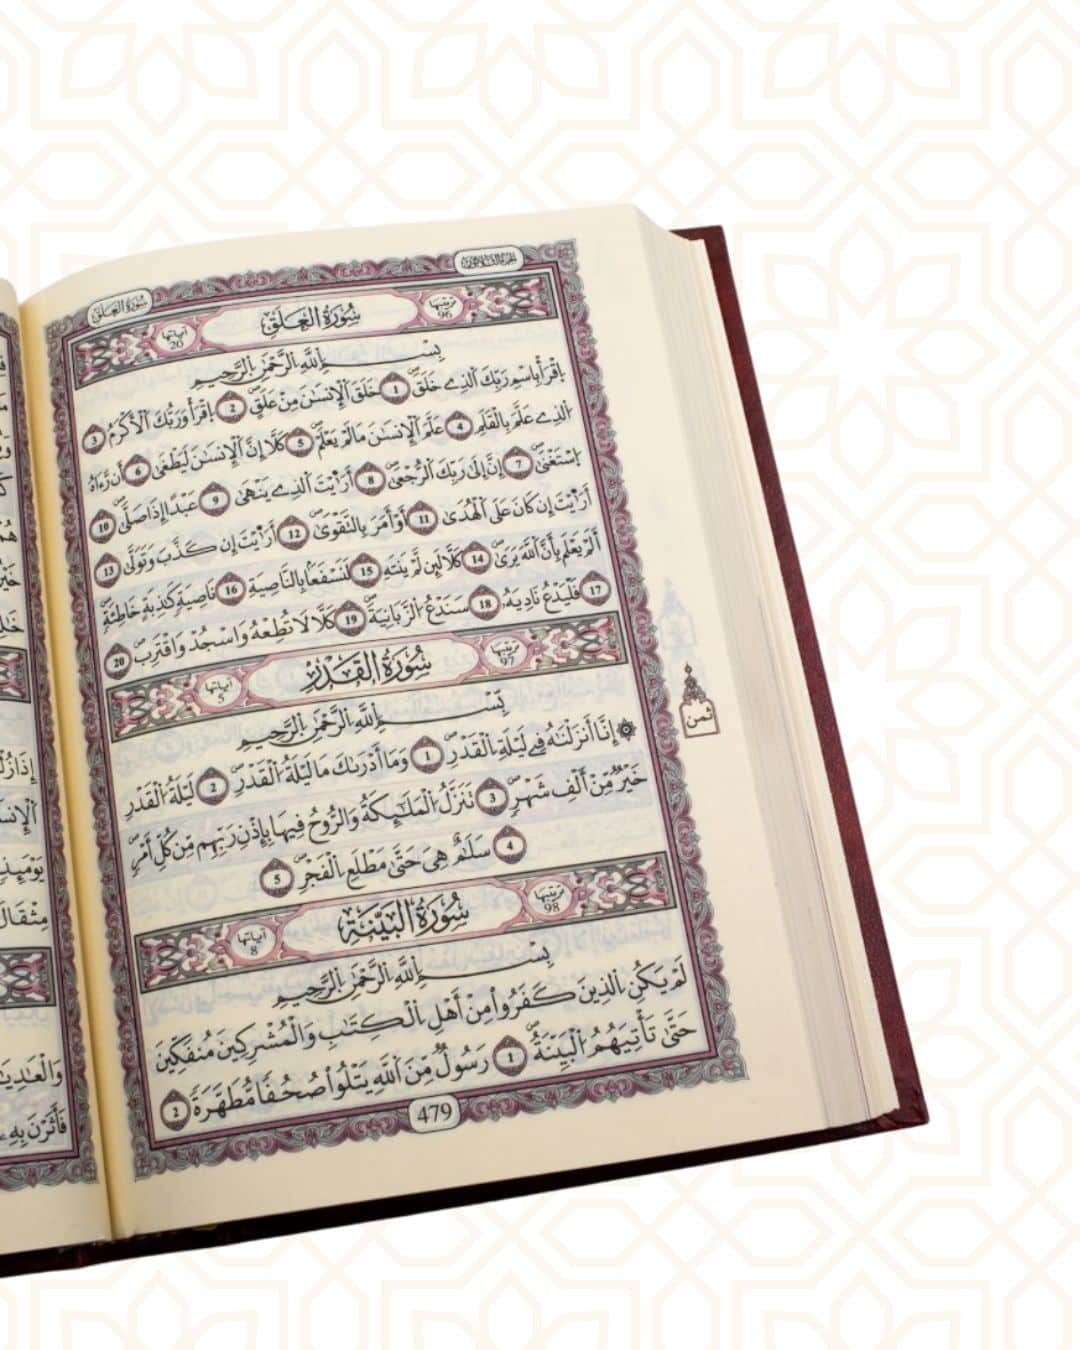 سُورَةُ الْعَلَقِ
سُورَةُ الْعَلَقِ
ترتيبها 96
آياتها 20
بِسْمِ اللَّهِ الرَّحْمَٰنِ الرَّحِيمِ
اِقْرَأْ بِاسْمِ رَبِّكَ اَلذِے خَلَقَ 1 خَلَقَ اَلْإِنسَٰنَ مِنْ عَلَقٍ 2 اِقْرَأْ وَرَبُّكَ اَلْأَكْرَمُ 3
اُلذِے عَلَّمَ بِالْقَلَمِ 4 عَلَّمَ اَلْإِنسَٰنَ مَا لَمْ يَعْلَمْ 5 كَلَّا إِنَّ اَلْإِنسَٰنَ لَيَطْغَىٰ 6 أَن رَّءَاهُ
اُسْتَغْنَىٰ 7 إِنَّ إَلَىٰ رَبِّكَ اَلرُّجْعَىٰ 8 أَرَٰيْتَ اَلذِے يَنْهَىٰ 9 عَبْداً إِذَا صَلَّىٰ 10
أَرَٰيْتَ إِن كَانَ عَلَى اَلْهُدَىٰ 11 أَوْ أَمَرَ بِالتَّقْوَىٰ 12 أَرَٰيْتَ إِن كَذَّبَ وَتَوَلَّىٰ 13
أَلَمْ يَعْلَم بِأَنَّ اَللَّهَ يَرَىٰ 14 كَلَّا لَئِن لَّمْ يَنتَهِ 15 لَنَسْفَعاً بِالنَّاصِيَةِ 16 نَاصِيَةٍ كَٰذِبَةٍ خَاطِئَةٍ
17 فَلْيَدْعُ نَادِيَهُۥ 18 سَنَدْعُ اُلزَّبَانِيَةَ 19 كَلَّا لَا تُطِعْهُ وَاسْجُدْ وَاقْتَرِب 20
سُورَةُ الْقَدْرِ
ترتيبها 97
آياتها 5
بِسْمِ اللَّهِ الرَّحْمَٰنِ الرَّحِيمِ
۞ إِنَّا أَنزَلْنَٰهُ فِے لَيْلَةِ اِلْقَدْرِ 1 وَمَا أَدْرَىٰكَ مَا لَيْلَةُ اُلْقَدْرِ 2 لَيْلَةُ اُلْقَدْرِ
خَيْرٌ مِّنْ أَلْفِ شَهْرٍ 3 تَنَزَّلُ اُلْمَلَٰٓئِكَةُ وَالرُّوحُ فِيهَا بِإِذْنِ رَبِّهِم مِّن كُلِّ أَمْرٍ
4 سَلَٰمٌ هِىَ حَتَّىٰ مَطْلَعِ اِلْفَجْرِ 5
ثمن
سُورَةُ الْبَيِّنَةِ
ترتيبها 98
آياتها 8
بِسْمِ اللَّهِ الرَّحْمَٰنِ الرَّحِيمِ
لَمْ يَكُنِ اِلذِينَ كَفَرُواْ مِنْ أَهْلِ اِلْكِتَٰبِ وَالْمُشْرِكِينَ مُنفَكِّينَ
حَتَّىٰ تَأْتِيَهُمُ اُلْبَيِّنَةُ 1 رَسُولٌ مِّنَ اَللَّهِ يَتْلُواْ صُحُفاً مُّطَهَّرَةً 2
479